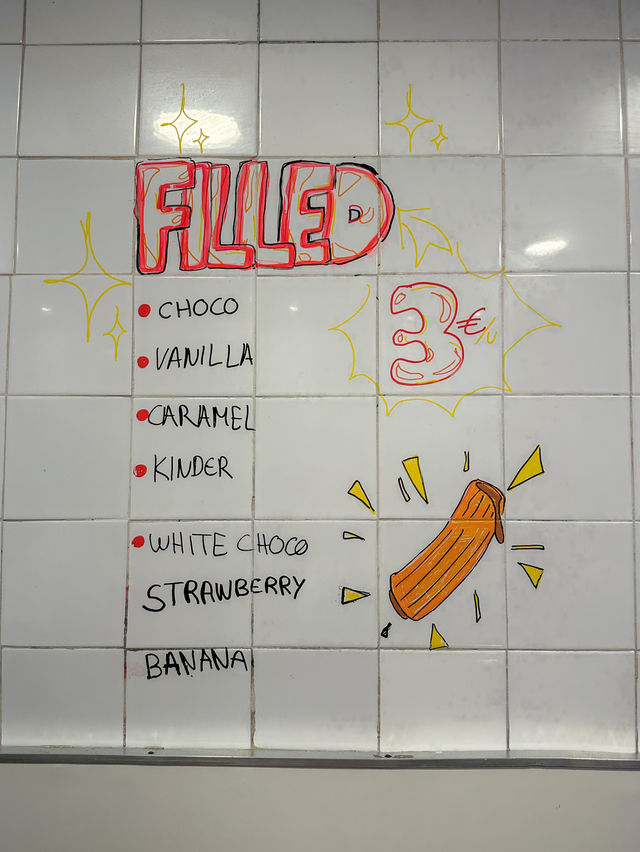 FILLED
• CHOCO
• VANILLA
• CARAMEL
• KINDER
• WHITE CHOCO
STRAWBERRY
BANANA
3 €/u